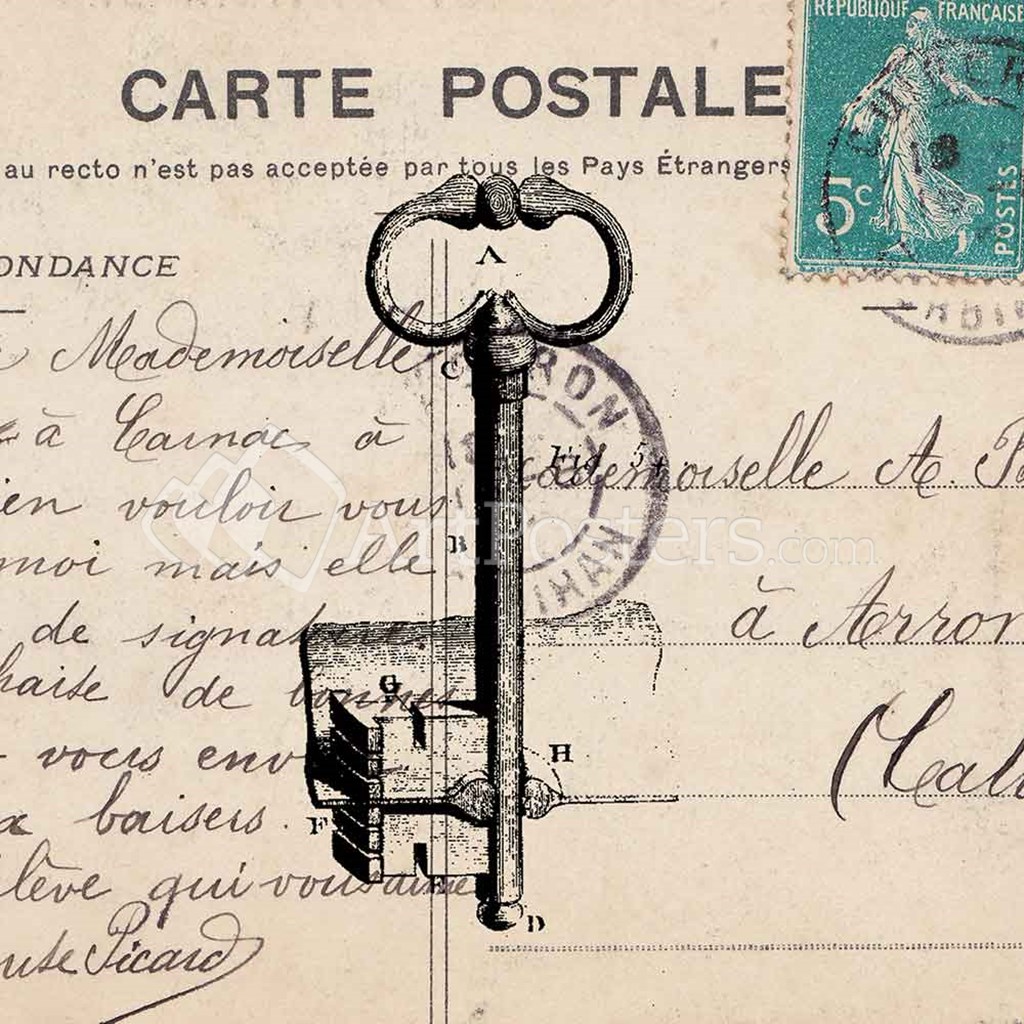 CARTE POSTALE
RÉPUBLIQUE FRANÇAISE
5c
POSTES
au recto n'est pas acceptée par tous les Pays Étrangers
ONDANCE
Mademoiselle
à Carnac à
ien vouloir vous
moi mais elle
de signature
haise de bonnes
vous env
baisers.
lève qui vous aime
Picard
A
C
B
G
H
F
E
D
Fig. 5.
RON
IHAN
ademoiselle A.
à Arron
(Cal
ArtPosters.com